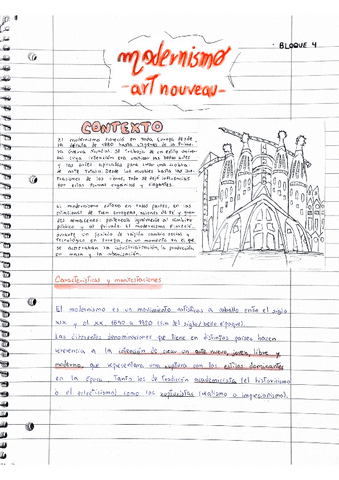 BLOQUE 4
modernismo
-art nouveau-
CONTEXTO
El modernismo floreció en toda Europa desde
la década de 1880 hasta vísperas de la Prime-
ra Guerra Mundial. Se trataba de un estilo univer-
sal cuya intención era unificar las bellas artes
y las artes aplicadas para crear una "obra
de arte total". Desde los muebles hasta las
de los libros, todo se dejó influencias
por ellas formas orgánicas y elegantes.
El modernismo estaba en todas partes, en las
de tren europeas, salones de té y gran-
des almacenes: pertenecía igualmente al ámbito
público y al privado. El modernismo floreció
durante un período de rápido cambio social y
tecnológico en Europa, en un momento en el que
se aceleraban la industrialización, la producción
en masa y la urbanización.
Características y manifestaciones
El modernismo es un movimiento artístico a caballo entre el siglo
XIX y el XX, 1890 a 1910 (fin del siglo/ belle époque).
Las diferentes denominaciones que tiene en distintos países hacen
referencia a la intención de crear un arte nuevo, joven, libre y
moderno, que representara una ruptura con los estilos dominantes
en la época. Tanto los de tradición academicista (el historicismo
o el eclecticismo) como los rupturistas (realismo o impresionismo).